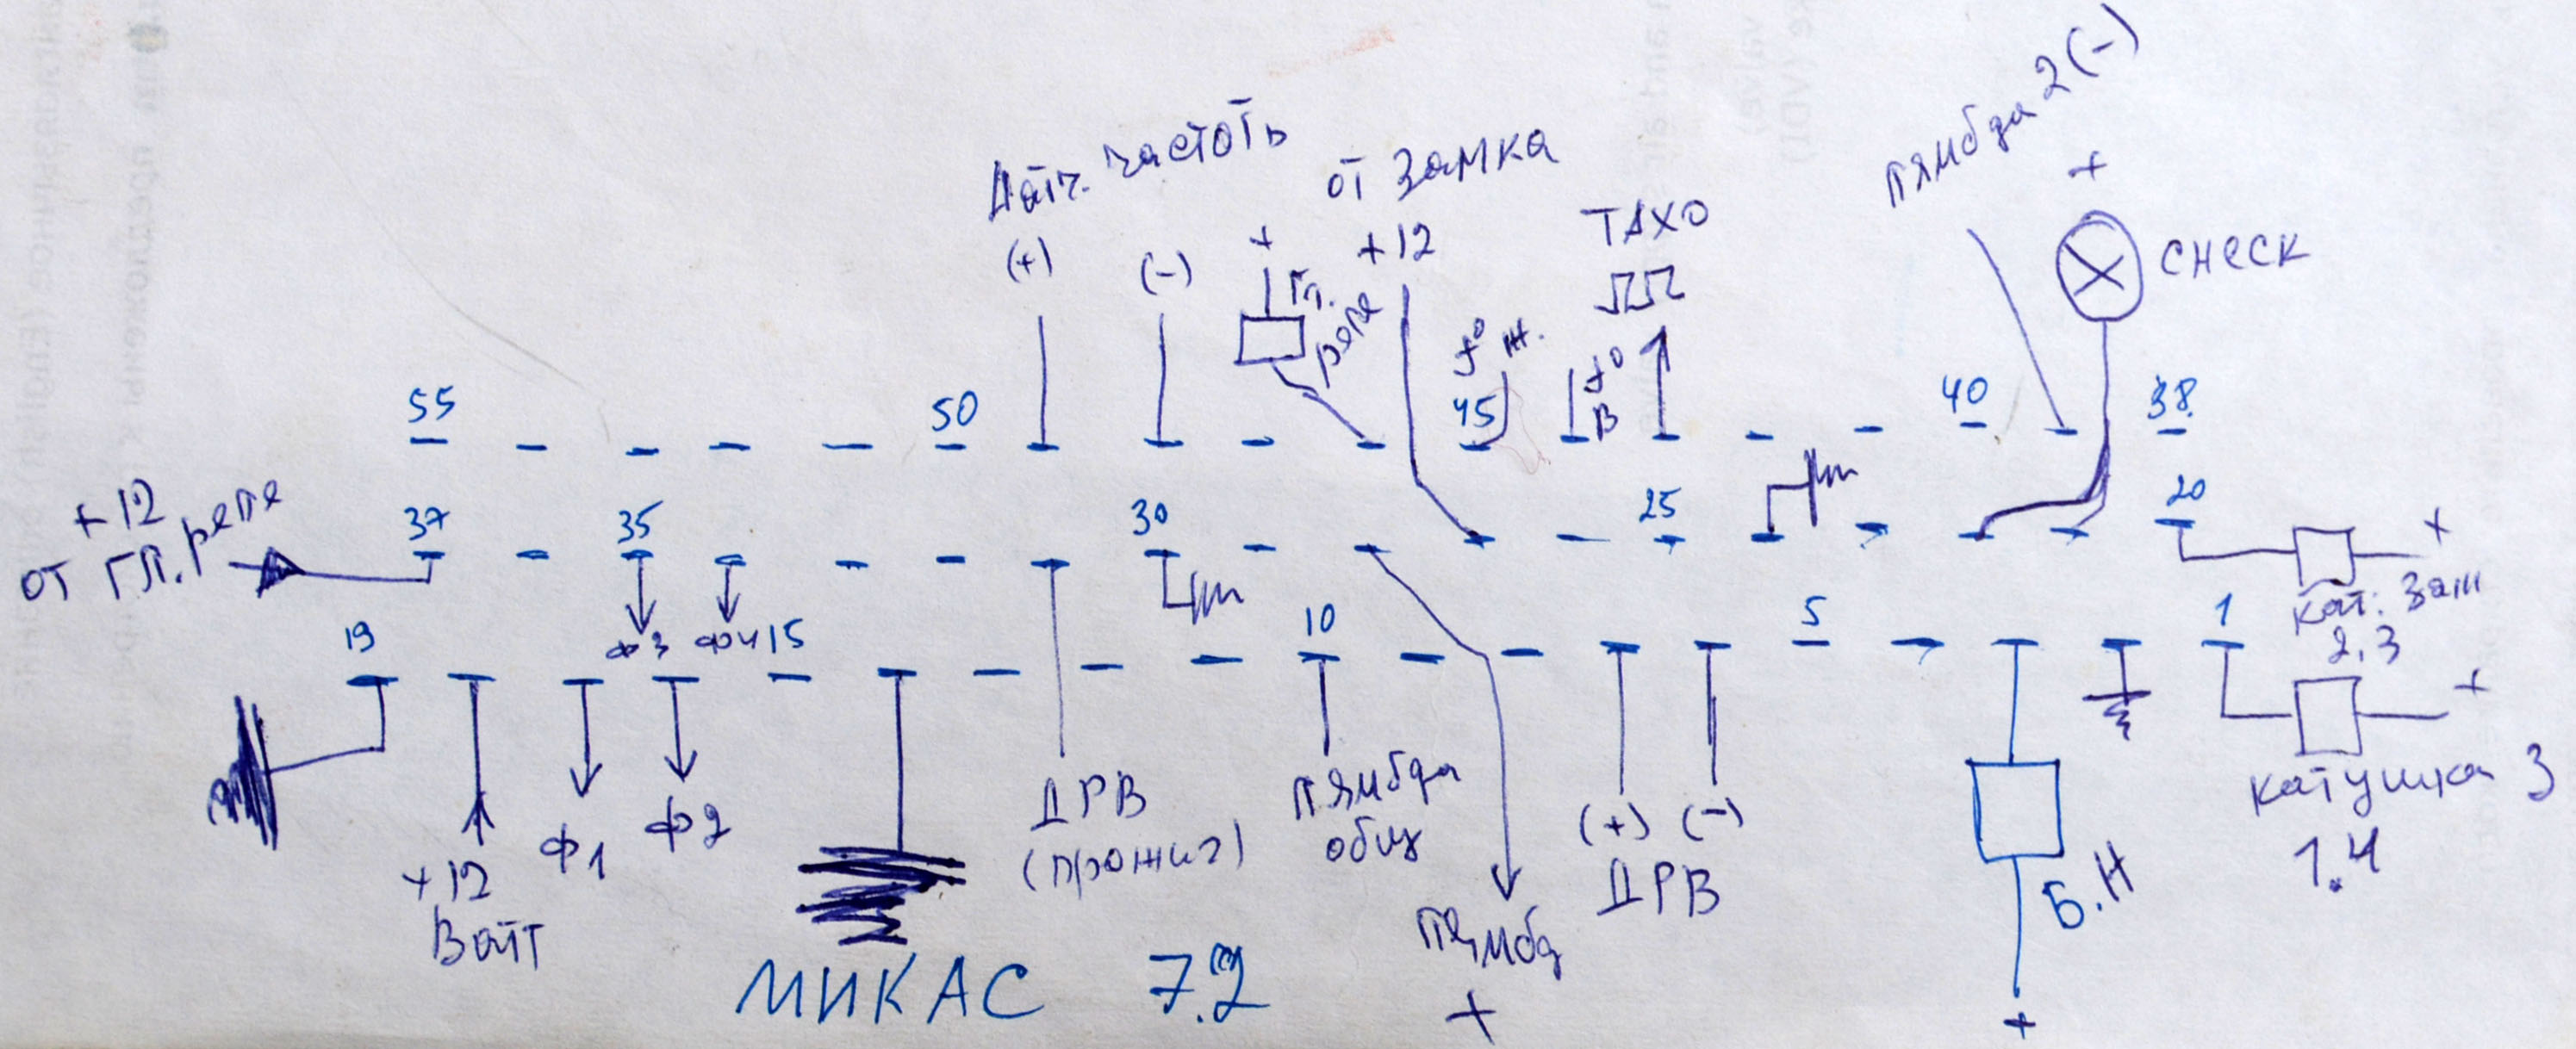 лямбда 2 (-)
Датч. частоты
от замка
(+)
(-)
+
+12
ТАХО
+
CHECK
Гл.
реле
t° ж.
t° В
55
50
45
40
38
+12
от гл. реле
37
35
30
25
20
+
Кат. Заж
2.3
Ф3
Ф4
19
15
10
5
1
+
катушка З
1.4
+12
Ватт
Ф1
Ф2
ДРВ
(прожиг)
лямбда
общ
лямбд
+
(+) (-)
ДРВ
Б.Н
+
МИКАС 7.2